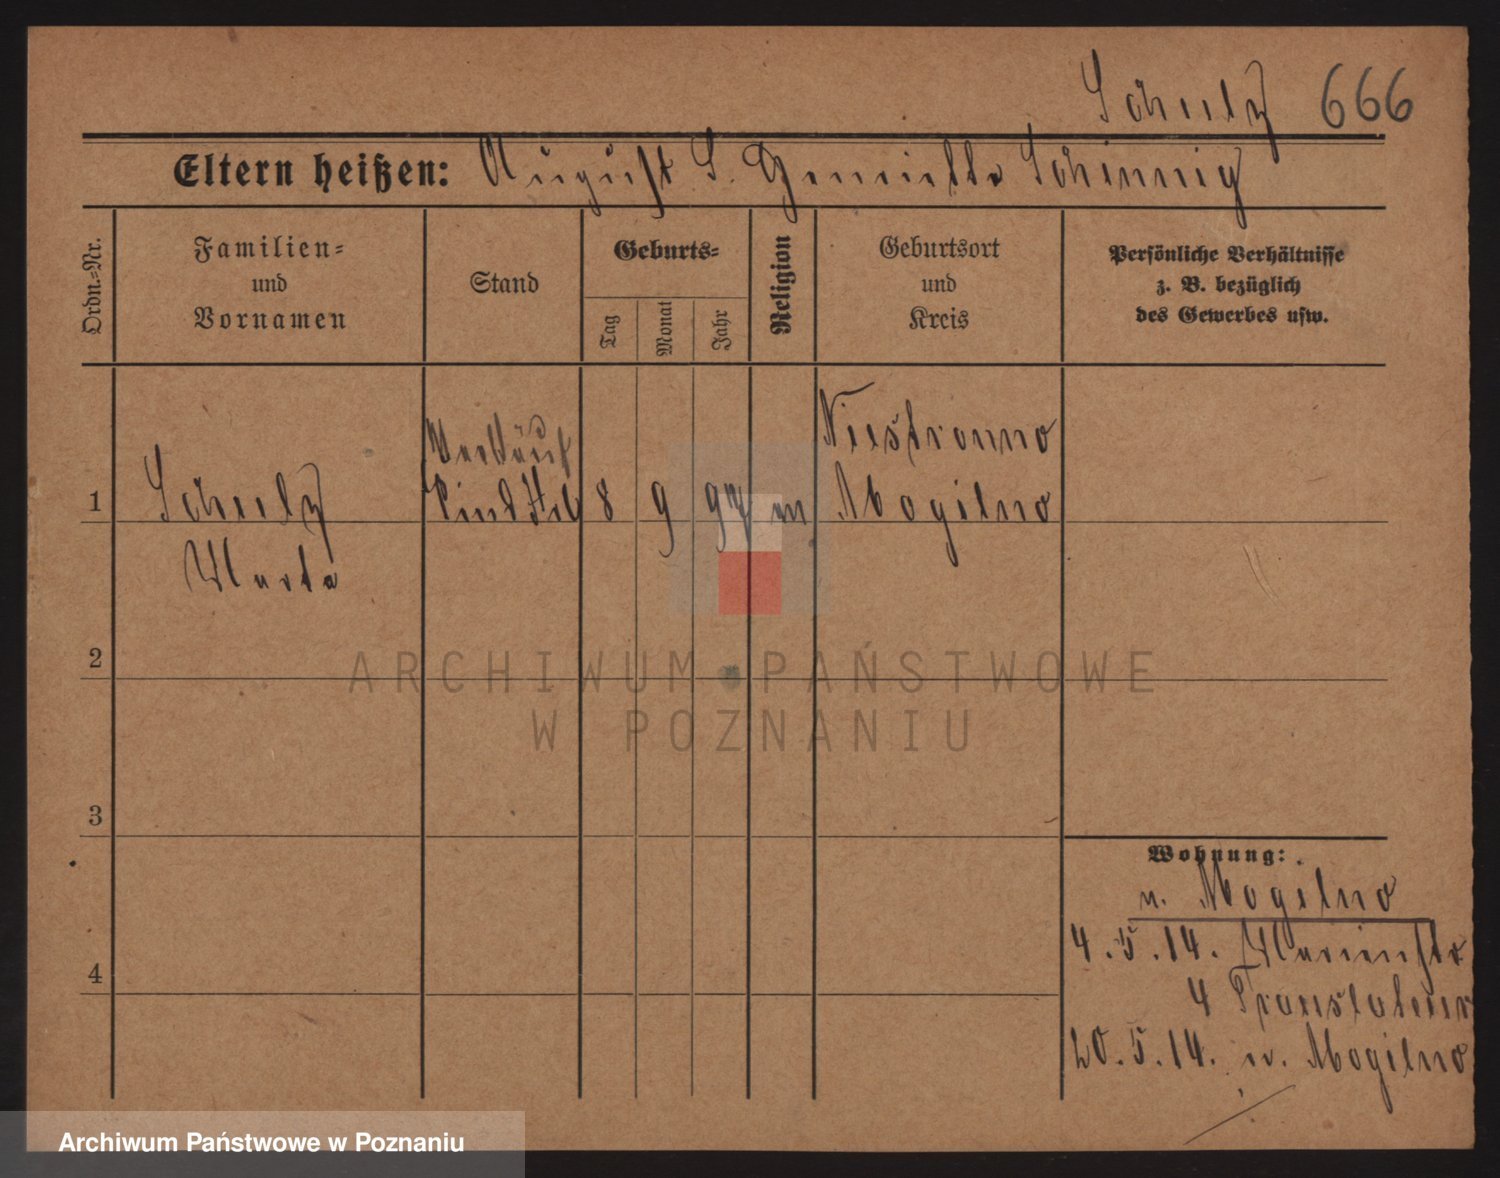 Schulz 666
Eltern heißen: August S. Schinnig
Ordn.=Nr.
Familien=
und
Vornamen
Stand
Geburts=
Tag
Monat
Jahr
Religion
Geburtsort
und
Kreis
Persönliche Verhältnisse
z. B. bezüglich
des Gewerbes usw.
Niestronno
1 Schulz 8 9 97 Mogilno
Marta
2
3
4
Wohnung:
n. Mogilno
4.5.14. Marienstr
4
20.5.14. n. Mogilno
ARCHIWUM PAŃSTWOWE
W POZNANIU
Archiwum Państwowe w Poznaniu